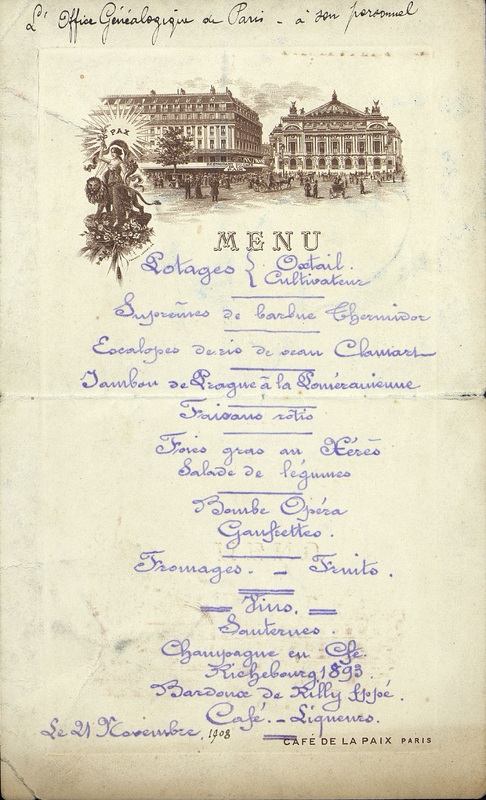 L'Office Généalogique de Paris - à son personnel
PAX
MENU
Potages { Oxtail.
Cultivateur
Suprêmes de barbue Thermidor
Escalopes de ris de veau Clamart
Jambon de Prague à la Poméranienne
Faisans rôtis
Foies gras au Xérès
Salade de légumes
Bombe Opéra
Gaufrettes.
Fromages. - Fruits.
Vins.
Sauternes.
Champagne en Cfe.
Richebourg 1893.
Bardoux de Rilly fppé.
Café. - Liqueurs.
Le 21 Novembre, 1908
CAFÉ DE LA PAIX PARIS